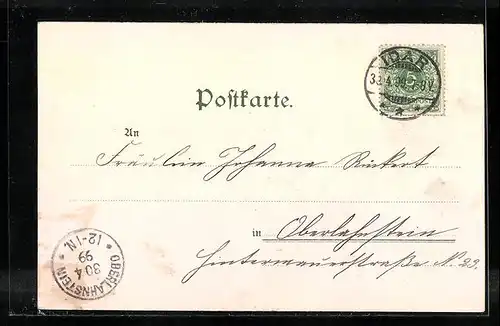 IDAR
5
Postkarte.
An
Fräulein Johanna Rückert
in Oberlahnstein
Hintermauerstraße N. 23.
OBERLAHNSTEIN
30 4
99
* 12-1N. *